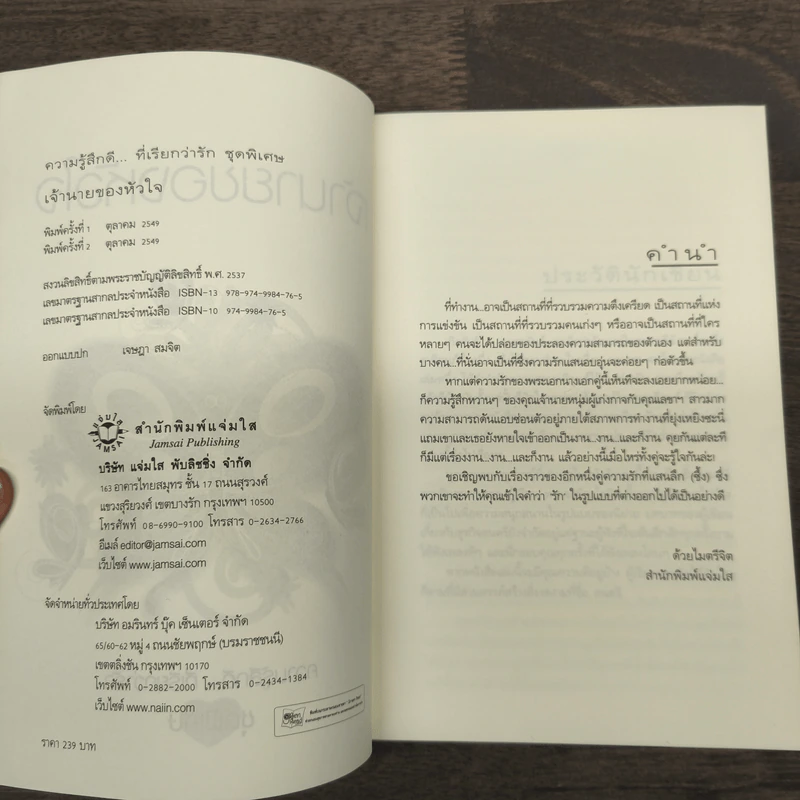 ความรู้สึกดี... ที่เรียกว่ารัก ชุดพิเศษ
เจ้านายของหัวใจ
พิมพ์ครั้งที่ 1 ตุลาคม 2549
พิมพ์ครั้งที่ 2 ตุลาคม 2549
สงวนลิขสิทธิ์ตามพระราชบัญญัติลิขสิทธิ์ พ.ศ. 2537
เลขมาตรฐานสากลประจำหนังสือ ISBN-13 978-974-9984-76-5
เลขมาตรฐานสากลประจำหนังสือ ISBN-10 974-9984-76-5
ออกแบบปก เจษฎา สมจิต
จัดพิมพ์โดย
สำนักพิมพ์แจ่มใส
Jamsai Publishing
บริษัท แจ่มใส พับลิชชิ่ง จำกัด
163 อาคารไทยสมุทร ชั้น 17 ถนนสุรวงศ์
แขวงสุริยวงศ์ เขตบางรัก กรุงเทพฯ 10500
โทรศัพท์ 08-6990-9100 โทรสาร 0-2634-2766
อีเมล์ editor@jamsai.com
เว็บไซต์ www.jamsai.com
จัดจำหน่ายทั่วประเทศโดย
บริษัท อมรินทร์ บุ๊ค เซ็นเตอร์ จำกัด
65/60-62 หมู่ 4 ถนนชัยพฤกษ์ (บรมราชชนนี)
เขตตลิ่งชัน กรุงเทพฯ 10170
โทรศัพท์ 0-2882-2000 โทรสาร 0-2434-1384
เว็บไซต์ www.naiin.com
ราคา 239 บาท
คำนำ
ที่ทำงาน...อาจเป็นสถานที่ที่รวบรวมความตึงเครียด เป็นสถานที่แห่ง
การแข่งขัน เป็นสถานที่ที่รวบรวมคนเก่งๆ หรืออาจเป็นสถานที่ที่ใคร
หลายๆ คนจะได้ปล่อยของประลองความสามารถของตัวเอง แต่สำหรับ
บางคน...ที่นั่นอาจเป็นที่ซึ่งความรักแสนอบอุ่นจะค่อยๆ ก่อตัวขึ้น
หากแต่ความรักของพระเอกนางเอกคู่นี้เห็นทีจะลงเอยยากหน่อย...
ก็ความรู้สึกหวานๆ ของคุณเจ้านายหนุ่มผู้เก่งกาจกับคุณเลขาฯ สาวมาก
ความสามารถดันแอบซ่อนตัวอยู่ภายใต้สภาพการทำงานที่ยุ่งเหยิงซะนี่
แถมเขาและเธอยังหายใจเข้าออกเป็นงาน...งาน...และก็งาน คุยกันแต่ละที
ก็มีแต่เรื่องงาน...งาน...และก็งาน แล้วอย่างนี้เมื่อไหร่ทั้งคู่จะรู้ใจกันล่ะ!
ขอเชิญพบกับเรื่องราวของอีกหนึ่งคู่ความรักที่แสนลึก (ซึ้ง) ซึ่ง
พวกเขาจะทำให้คุณเข้าใจคำว่า 'รัก' ในรูปแบบที่ต่างออกไปได้เป็นอย่างดี
ด้วยไมตรีจิต
สำนักพิมพ์แจ่มใส